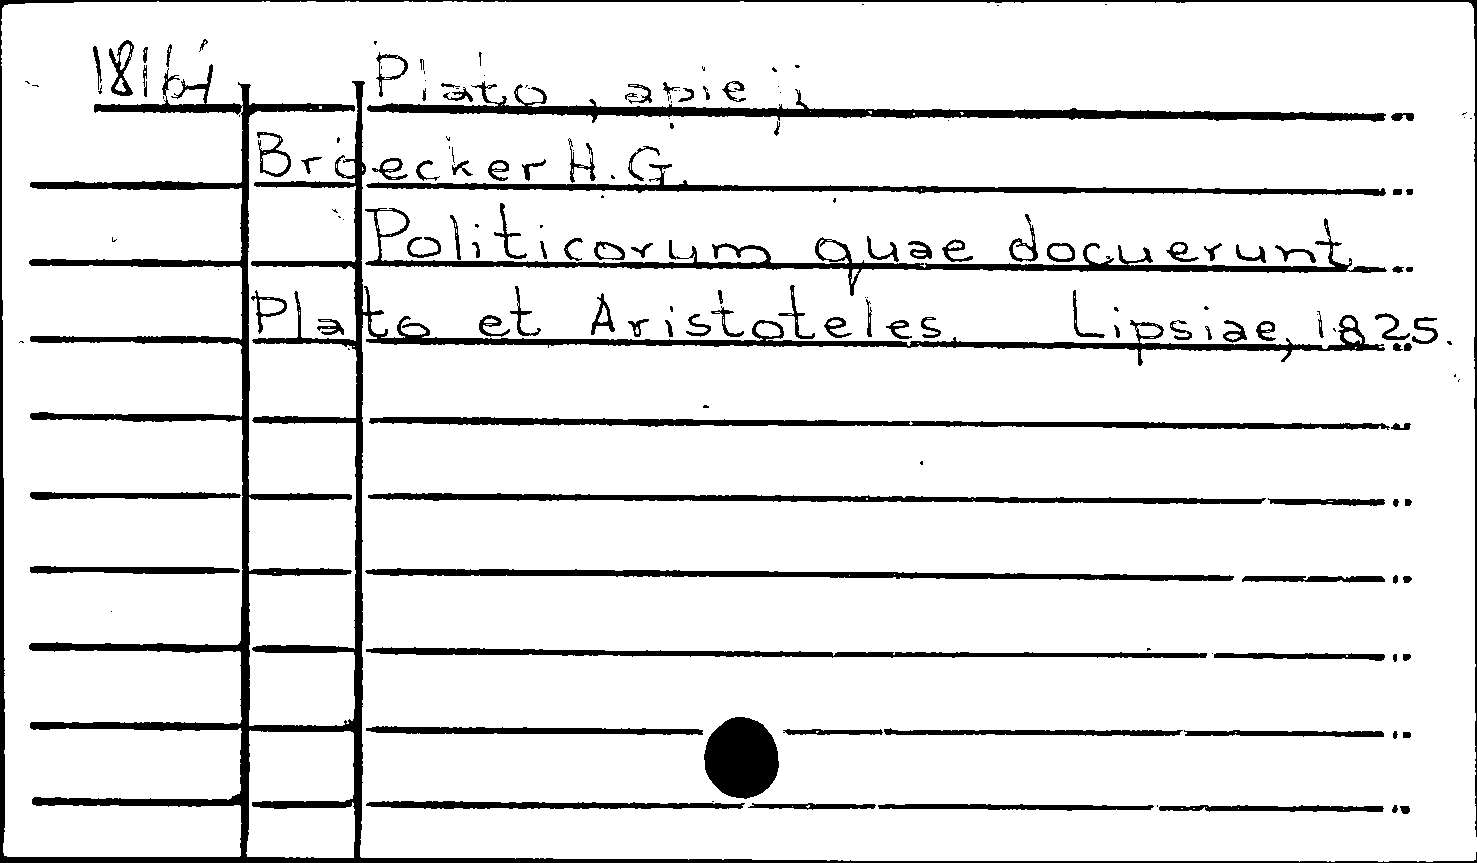 Plato, apie jį
Broecker H.G.
Politicorum quae docuerunt
Plato et Aristoteles. Lipsiae, 1825.